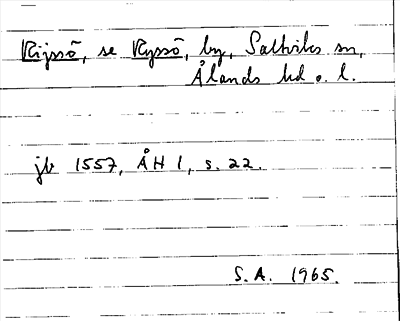 Rijssö, se Ryssö, by, Saltviks sn,
Ålands hd o. l.
jb 1557, ÅH 1, s. 22.
S.A. 1965.